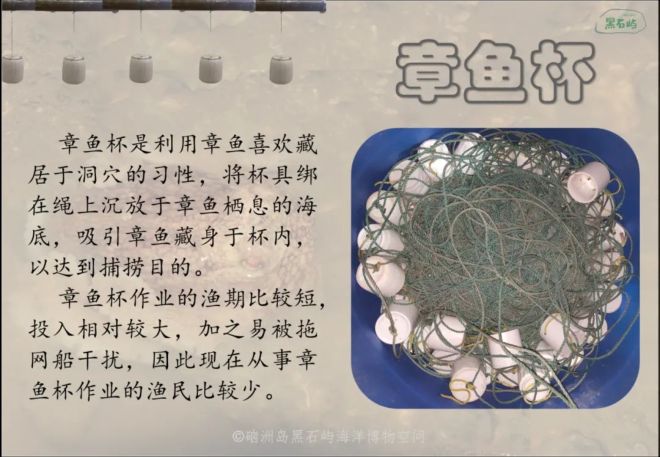 黑石屿
章鱼杯
章鱼杯是利用章鱼喜欢藏
居于洞穴的习性，将杯具绑
在绳上沉放于章鱼栖息的海
底，吸引章鱼藏身于杯内，
以达到捕捞目的。
章鱼杯作业的渔期比较短，
投入相对较大，加之易被拖
网船干扰，因此现在从事章
鱼杯作业的渔民比较少。
©硇洲岛黑石屿海洋博物空间